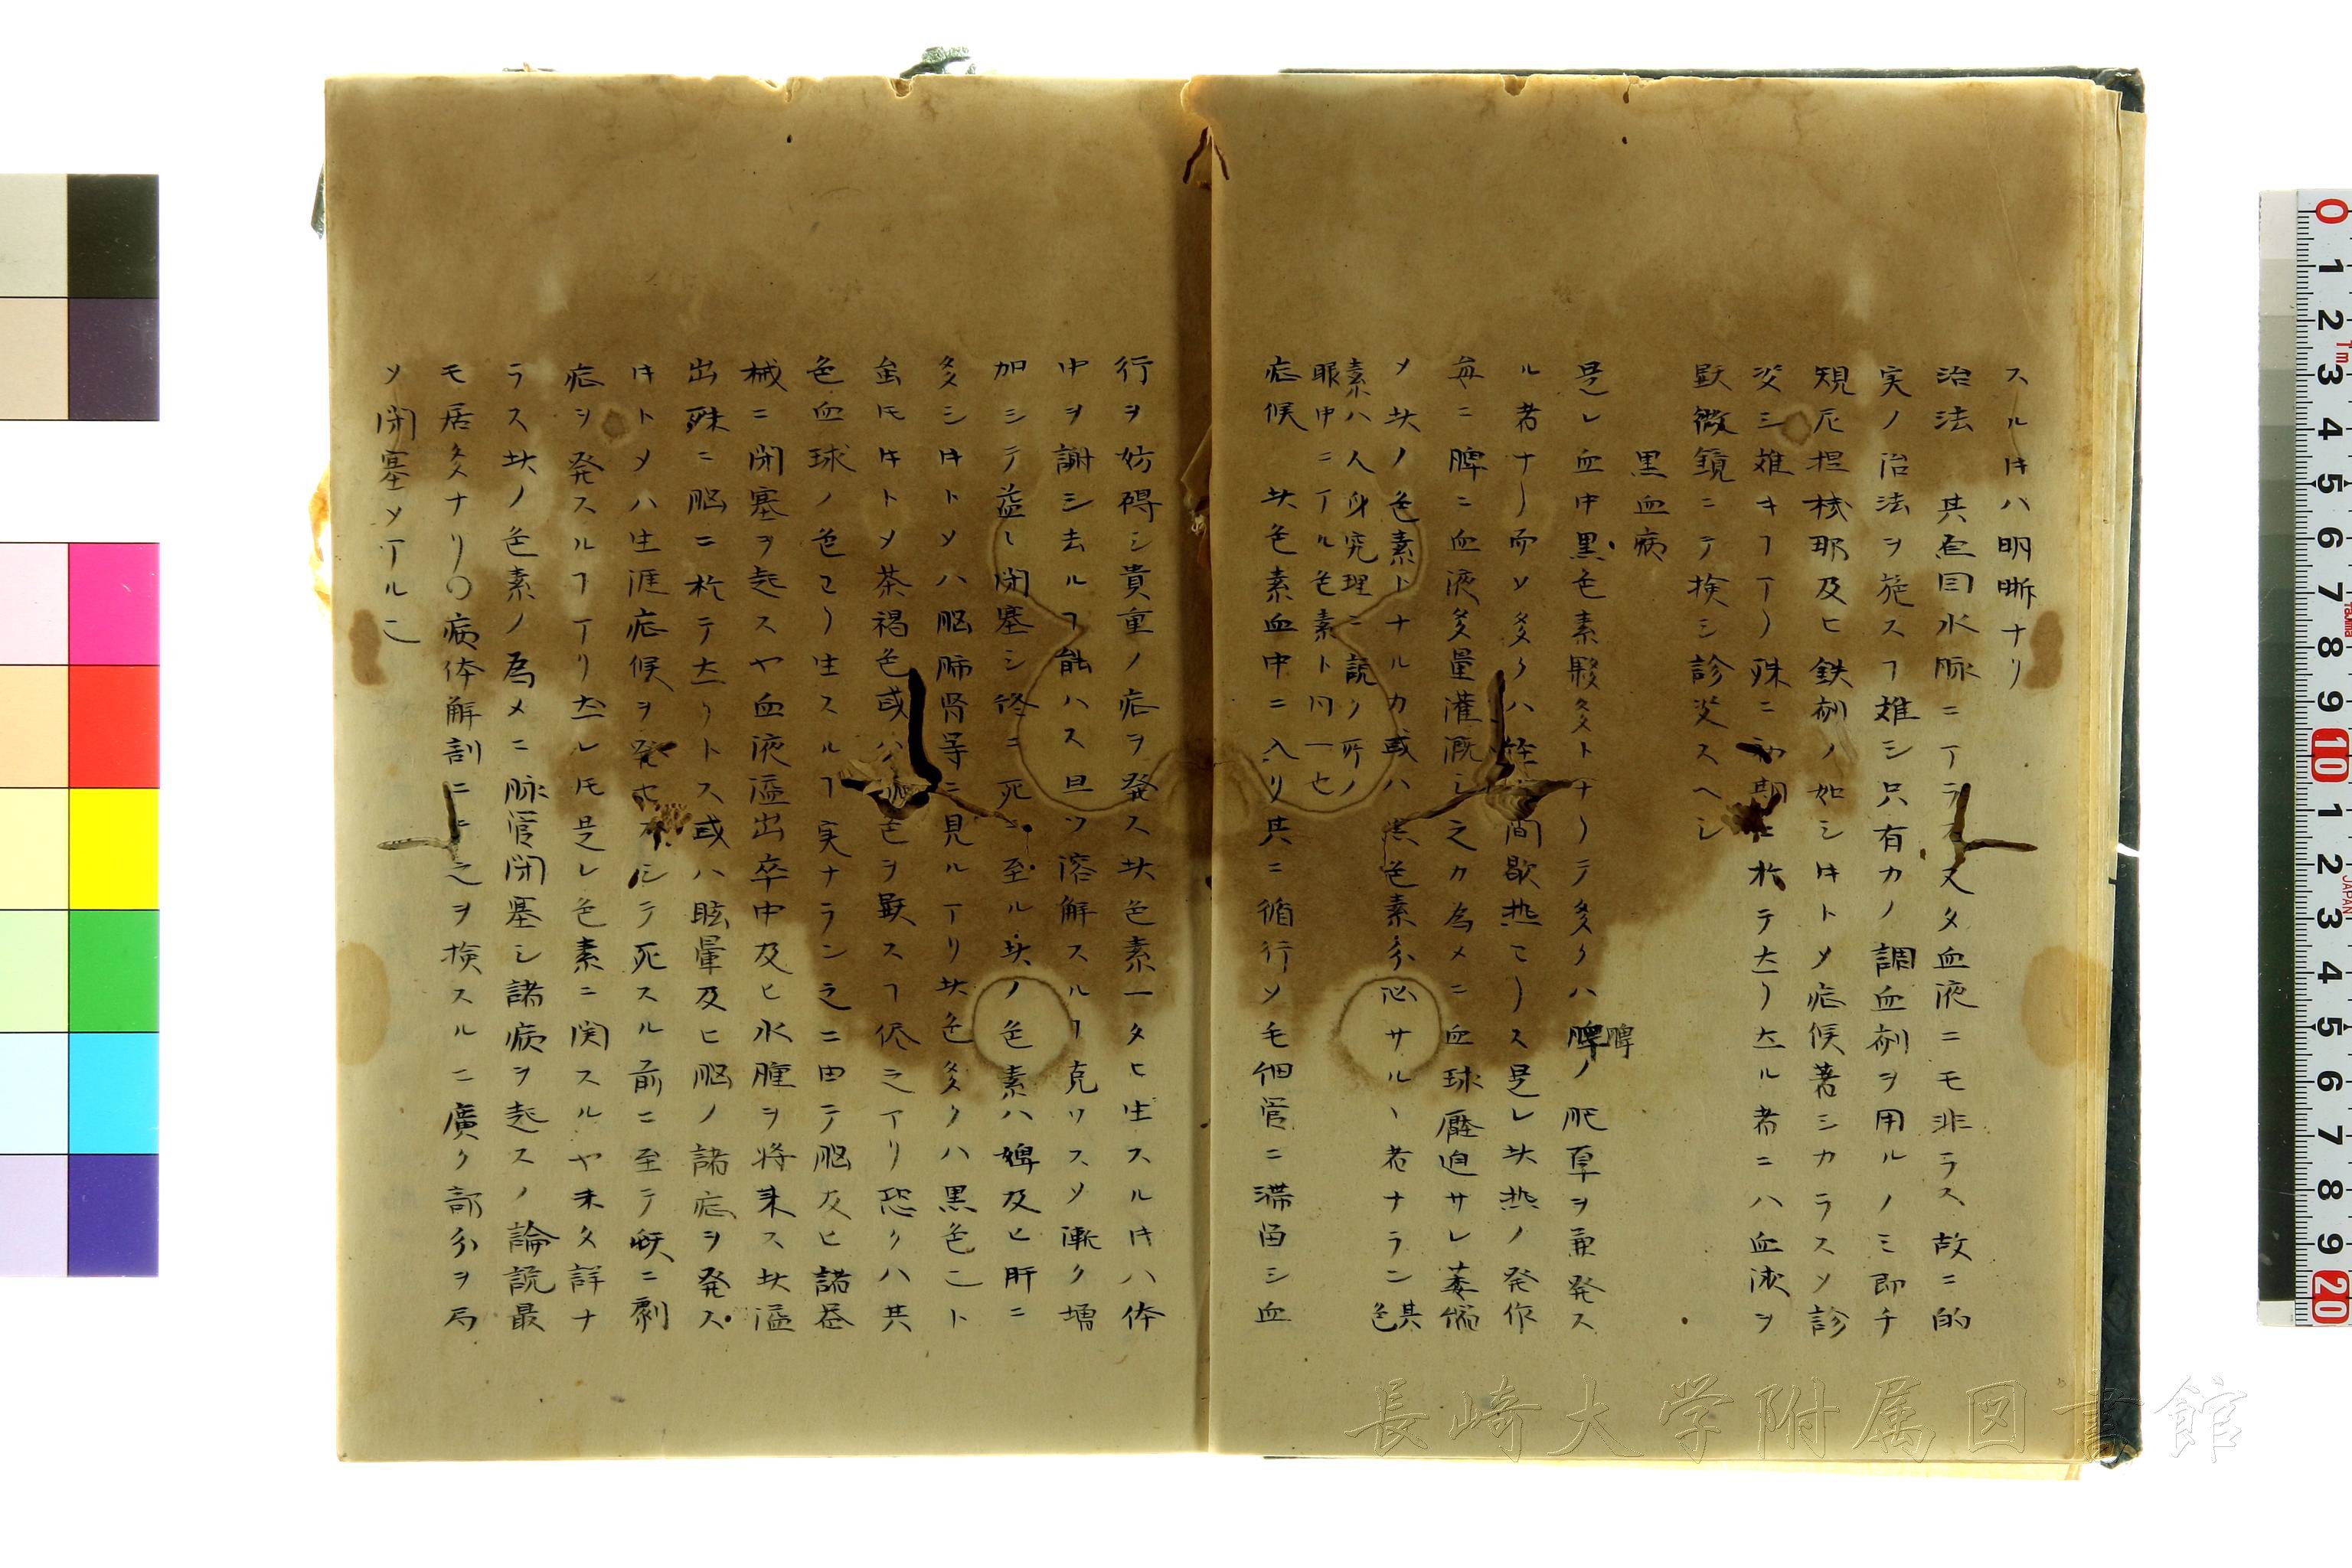 スルキハ明晰ナリ
治法 其原因水脉ニアラス又タ血液ニモ非ラス故ニ的
実ノ治法ヲ施スヿ難シ只有力ノ調血剤ヲ用ルノミ即チ
規尼涅 耶及ヒ鉄剤ノ如シキトメ症候著シカラスメ診
断シ難キヿアリ殊ニ初期ニ於テ然リ然ル者ニハ血液ヲ
顕微鏡ニテ検シ診断スヘシ
黒血病
是レ血中黒色素夥多トナリテ多クハ脾ノ肥厚ヲ兼発ス
脾
ル者ナリ而メ多クハ 間歇熱ヨリス是レ此熱ノ発作
毎ニ脾ニ血液多量灌漑シ之カ為メニ血球壓迫サレ萎縮
メ此ノ色素トナルカ或ハ黒色素分泌サルヽ者ナラン其色
素ハ人身究理ニ説ク所ノ
眼中ニアル色素ト同一也
症候 此色素血中ニ入リ共ニ循行メ毛細管ニ滞留シ血
行ヲ妨碍シ貴重ノ症ヲ発ス此色素一タヒ生スルキハ体
中ヲ謝シ去ルヿ能ハス且ツ溶解スルヿ克ワスメ漸ク増
加シテ益レ閉塞シ終ニ死ニ至ル此ノ色素ハ脾及ヒ肝ニ
多シキトメハ脳肺腎等ニ見ルアリ此色多クハ黒色ニト
虽モキトメ茶褐色或ハ 色ヲ顕スヿ侭之アリ恐クハ共
色血球ノ色ヨリ生スルヿ実ナラン之ニ由テ脳及ヒ諸器
械ニ閉塞ヲ起スヤ血液溢出卒中及ヒ水腫ヲ将来ス此溢
出殊ニ脳ニ於テ然リトス或ハ眩暈及ヒ脳ノ諸症ヲ発ス
キトメハ生涯症候ヲ発セスシテ死スル前ニ至テ峻ニ劇
症ヲ発スルヿアリ然レモ是レ色素ニ関スルヤ未タ詳ナ
ラス此ノ色素ノ為メニ脉管閉塞シ諸病ヲ起スノ論説最
モ居多ナリ〇病体解剖ニ 之ヲ検スルニ廣ク部分ヲ局
メ閉塞メアルニ
長崎大学附属図書館